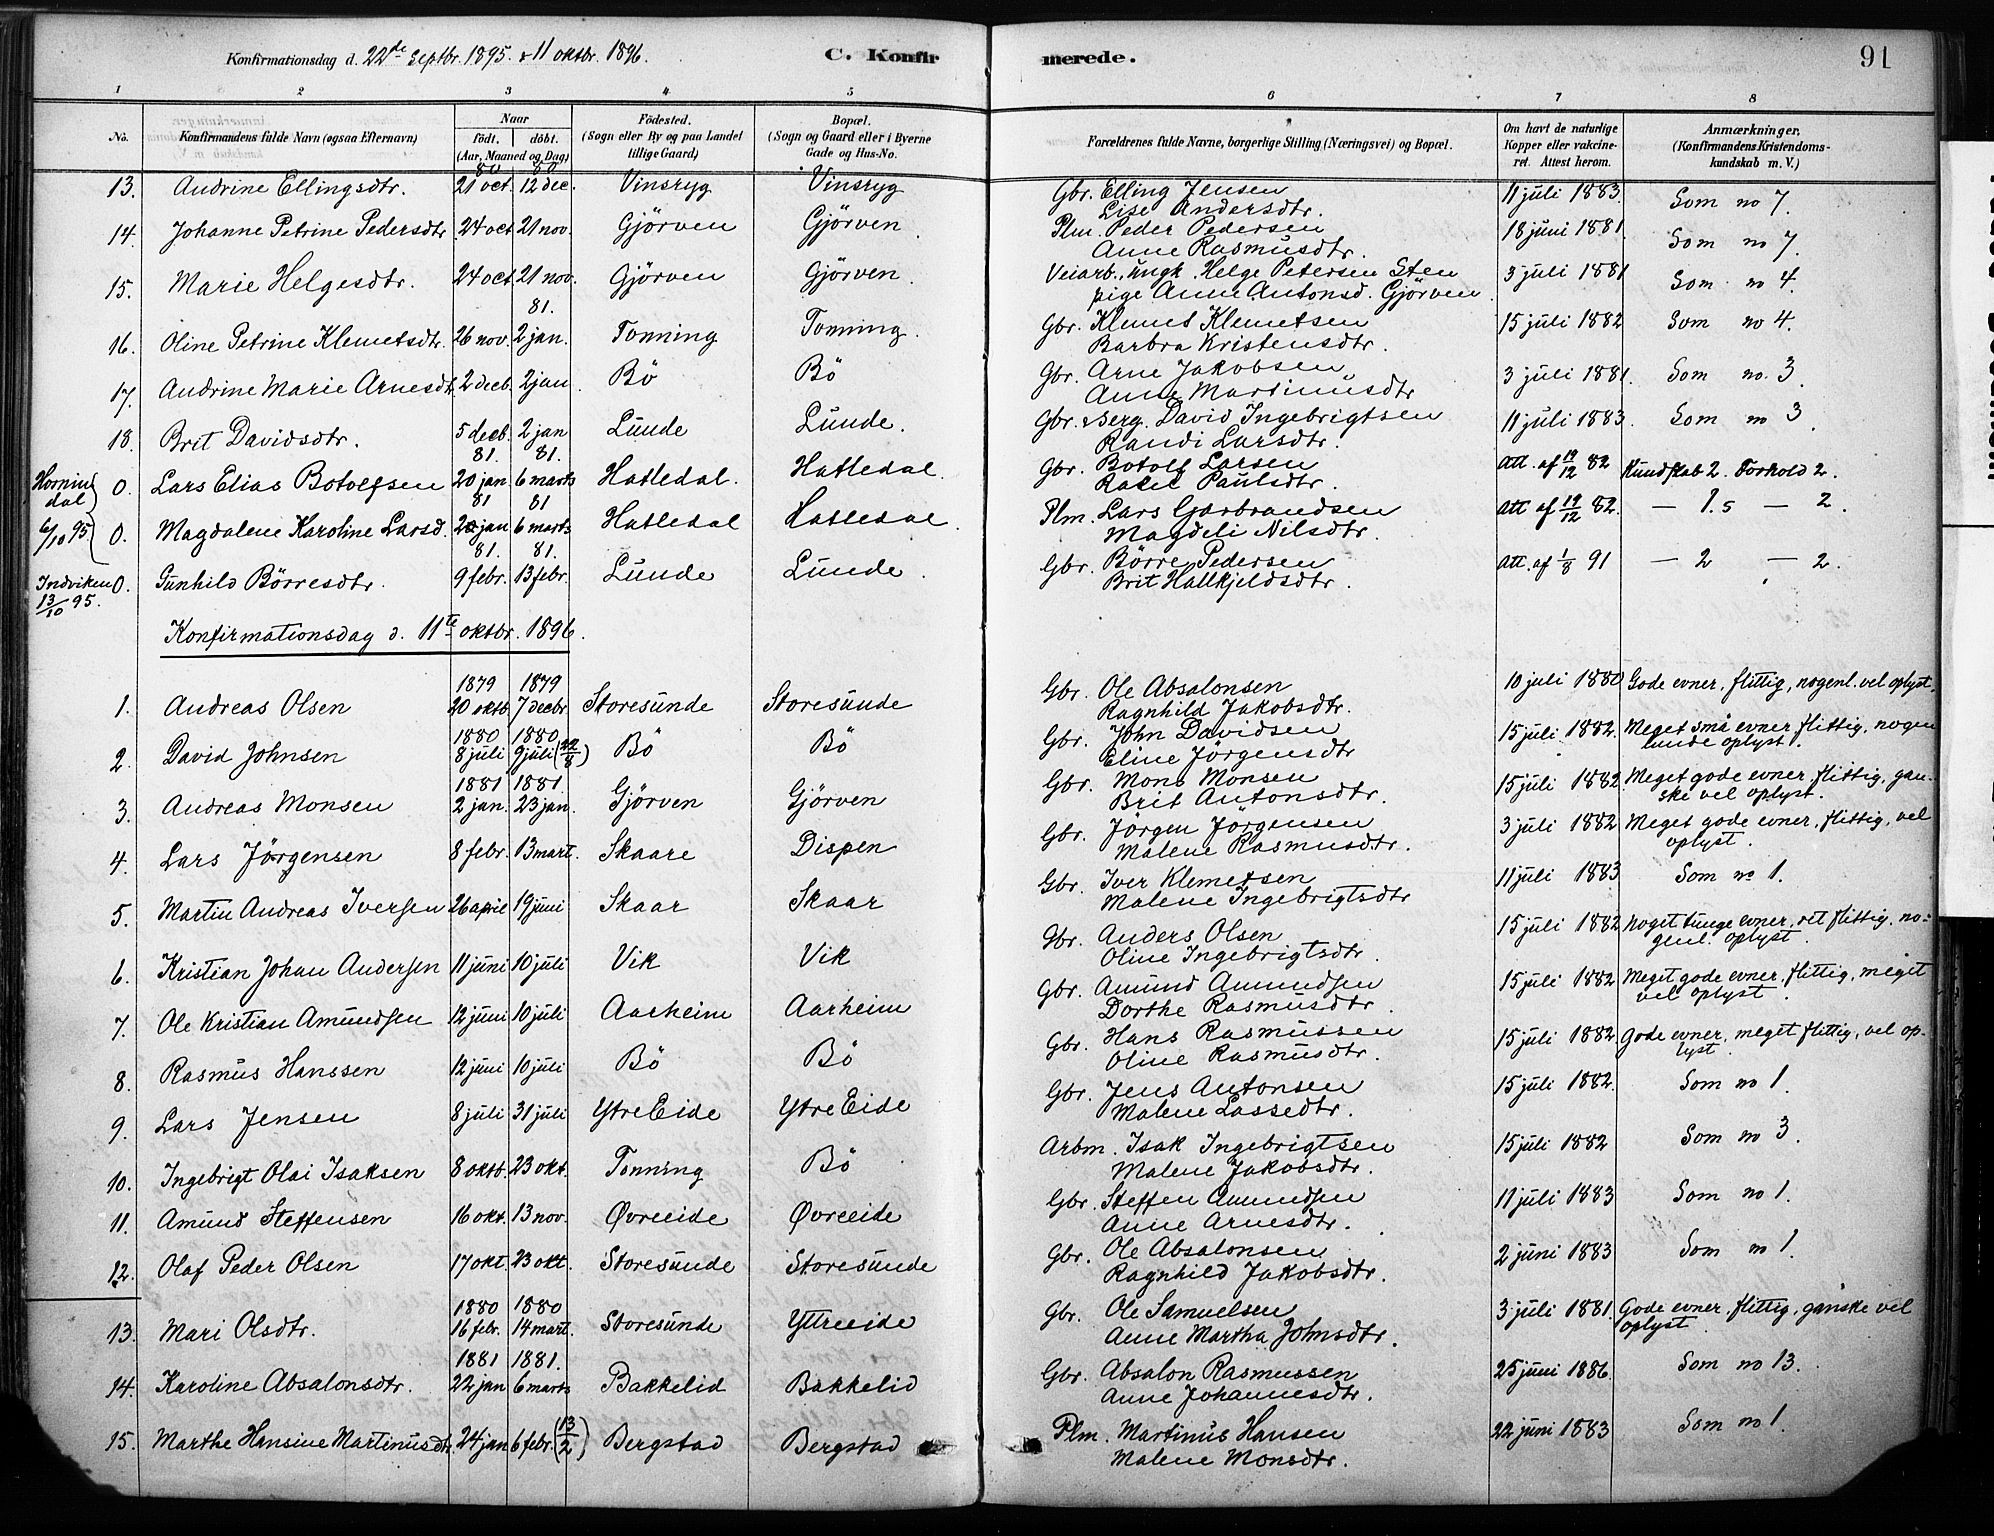 Konfirmationsdag d. 22de Septbr. 1895. & 11 oktbr. 1896.
C. Konfirmerede.
91
1 2 3 4 5 6 7 8
No.
Konfirmandens fulde Navn (ogsaa Efternavn)
Naar
födt. döbt.
(Aar, Maaned og Dag)
Födested.
(Sogn eller By og paa Landet
tillige Gaard)
Bopæl.
(Sogn og Gaard eller i Byerne
Gade og Hus-No.
Forældrenes fulde Navne, borgerlige Stilling (Næringsvei) og Bopæl.
Om havt de naturlige
Kopper eller vakcine-
ret. Attest herom.
Anmærkninger,
(Konfirmandens Kristendoms-
kundskab m. V.)
80 80
13. Andrine Ellingsdtr. 21 oct. 12 dec. Vinsryg Vinsryg Gbr. Elling Jensen 11 juli 1883. Som no 7.
Lise Andersdtr.
14. Johanne Petrine Pedersdtr 24 oct 21 nov. Gjörven Gjörven Plm. Peder Pedersen 18 juni 1881. Som no 7.
Anne Rasmusdtr.
15. Marie Helgesdtr. 24 oct. 21 nov. Gjörven Gjörven Veiarb., ungk. Helge Petersen Sten 3 juli 1881 Som no 4.
pige Anne Antonsd. Gjörven.
81.
16. Oline Petrine Klemetsdtr. 26 nov. 2 jan. Tonning Tonning. Gbr. Klemet Klemetsen 15 juli 1882 Som no 4.
Barbra Kristensdtr.
17. Andrine Marie Arnesdtr. 2 decb. 2 jan. Bö Bö Gbr. Arne Jakobsen, 3 juli 1881. Som no. 3.
Anne Martinusdtr
18. Brit Davidsdtr. 5 decb. 2 jan Lunde Lunde. Gbr. & Berg. David Ingebrigtsen 11 juli 1883. Som no 3.
Randi Larsdtr.
81. 81.
Hornindal 6/10 95
0. Lars Elias Botolfsen 20 jan 6 marts Hatledal. Hatledal. Gbr. Botolf Larsen Att. af 19/12 82 Kundskab 2. Forhold 2.
Rakel Paulsdtr.
81 81
0. Magdalene Karoline Larsd. 20 jan 6 marts Hatledal Hatledal. Plm. Lars Garbrandsen Att af 19/12 82. — 1.5 — 2.
Magdeli Nilsdtr.
81. 81.
Indviken 13/10 95.
0. Gunhild Börresdtr. 9 febr. 13 febr. Lunde Lunde. Gbr. Börre Pedersen Att. af 1/8 91 — 2 — 2.
Brit Hallkjeldsdtr.
Konfirmationsdag d. 11te oktbr. 1896.
1879 1879
1. Andreas Olsen 20 oktb. 7 decbr Storesunde Storesunde Gbr. Ole Absalonsen 10 juli 1880 Gode evner, flittig, nogenl. vel oplyst.
Ragnhild Jakobsdtr.
1880 1880
2. David Johnsen 8 juli 9 juli (22/8) Bö Bö Gbr. John Davidsen 15 juli 1882. Meget små evner, flittig, nogen
Eline Jörgensdtr lunde oplyst.
1881 1881.
3. Andreas Monsen 2 jan. 23 jan. Gjörven Gjörven Gbr. Mons Monsen 15 juli 1882. Meget gode evner, flittig, gan-
Brit Antonsdtr. ske vel oplyst.
4. Lars Jörgensen 8 febr. 13 mart. Skaare Dispen Gbr. Jörgen Jörgensen 3 juli 1882 Meget gode evner, flittig, vel
Malene Rasmusdtr. oplyst.
5. Martin Andreas Iversen 26 april 19 juni Skaar Skaar Gbr. Iver Klemetsen 11 juli 1883 Som no 1.
Malene Ingebrigtsdtr
6. Kristian Johan Andersen 11 juni 10 juli Vik Vik Gbr. Anders Olsen 15 juli 1882 Noget tunge evner, ret flittig, no-
Oline Ingebrigtsdtr. genl. oplyst.
7. Ole Kristian Amundsen 12 juni 10 juli Aarheim Aarheim Gbr. Amund Amundsen 15 juli 1882 Meget gode evner, flittig, meget
Dorthe Rasmusdtr. vel oplyst.
8. Rasmus Hanssen 12 juni 10 juli Bö Bö Gbr. Hans Rasmussen 15 juli 1882 Gode evner, meget flittig, vel op-
Oline Rasmusdtr. lyst.
9. Lars Jensen 8 juli 31 juli Ytre Eide Ytre Eide Gbr. Jens Antonsen 15 juli 1882. Som no 1.
Malene Lassedtr.
10. Ingebrigt Olai Isaksen 8 oktb. 23 okt. Tonning Bö Arbm. Isak Ingebrigtsen 15 juli 1882 Som no 3.
Malene Jakobsdtr.
11. Amund Steffensen 16 okt. 13 nov. Øvreeide Øvreeide Gbr. Steffen Amundsen 11 juli 1883 Som no 1.
Anne Arnesdtr.
12. Olaf Peder Olsen 17 okt. 23 okt. Storesunde Storesunde Gbr. Ole Absalonsen 2 juni 1883 Som no 1.
Ragnhild Jakobsdtr.
1880 1880
13. Mari Olsdtr. 16 febr. 14 mart. Storesunde Yttreeide Gbr. Ole Samuelsen 3 juli 1881. Gode evner, flittig, ganske vel
Anne Martha Johnsdtr. oplyst.
1881 1881.
14. Karoline Absalonsdtr. 22 jan 6 marts Bakkelid Bakkelid Gbr. Absalon Rasmussen 25 juni 1886. Som no 13.
Anne Johannesdtr.
15. Marthe Hansine Martinusdtr. 24 jan 6 febr. (13/2) Bergstad Bergstad Plm. Martinus Hansen 22 juni 1883 Som no 1.
Malene Monsdtr.